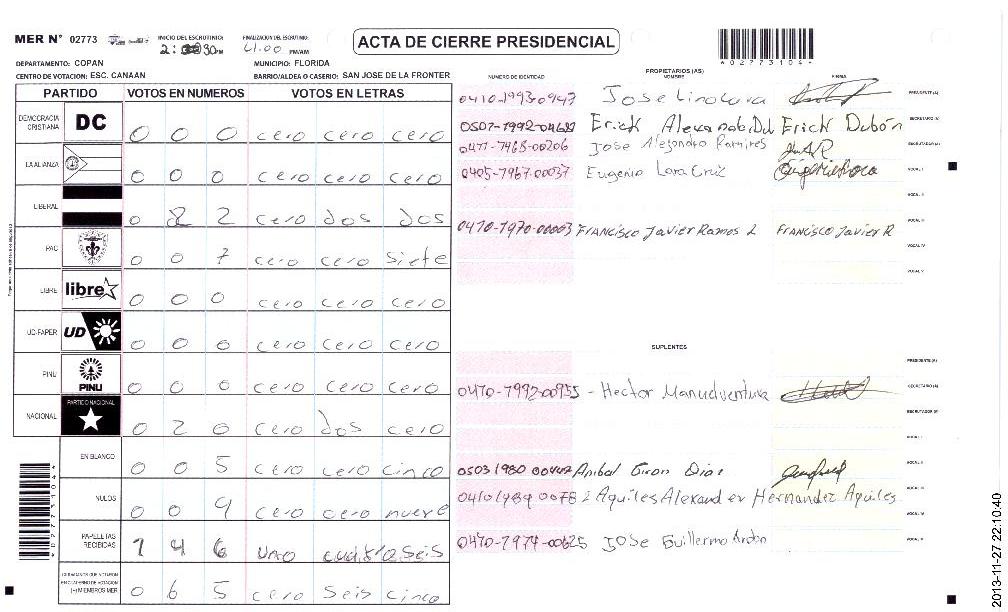 MER N° 02773
INICIO DEL ESCRUTINIO: 2:30 PM
FINALIZACION DEL ESCRUTINIO: 4:00 PM/AM
ACTA DE CIERRE PRESIDENCIAL
*02773104*
DEPARTAMENTO: COPAN MUNICIPIO: FLORIDA
CENTRO DE VOTACION: ESC. CANAAN BARRIO/ALDEA O CASERIO: SAN JOSE DE LA FRONTER
PARTIDO VOTOS EN NUMEROS VOTOS EN LETRAS
DEMOCRACIA CRISTIANA DC 0 0 0 cero cero cero
LA ALIANZA 0 0 0 cero cero cero
LIBERAL 0 2 2 cero dos dos
PAC 0 0 7 cero cero siete
LIBRE libre 0 0 0 cero cero cero
UD-FAPER UD 0 0 0 cero cero cero
PINU PINU 0 0 0 cero cero cero
NACIONAL PARTIDO NACIONAL 0 2 0 cero dos cero
EN BLANCO 0 0 5 cero cero cinco
NULOS 0 0 9 cero cero nueve
PAPELETAS RECIBIDAS 1 4 6 uno cuatro seis
CIUDADANOS QUE VOTARON EN CUADERNO DE VOTACION (+) MIEMBROS MER 0 6 5 cero seis cinco
*02773104*
PROPIETARIOS (AS)
NUMERO DE IDENTIDAD NOMBRE FIRMA
0410-1993-0947 PRESIDENTE (A)
Erick Dubón SECRETARIO (A)
Jose Alejandro Ramires ESCRUTADOR (A)
Eugenio Lara Cruz VOCAL I
VOCAL II
0470-1970-00003 Francisco Javier Ramos L Francisco Javier R VOCAL III
VOCAL IV
VOCAL V
SUPLENTES
PRESIDENTE (A)
0470-1992-00955 - Hector Manuel ventura SECRETARIO (A)
ESCRUTADOR (A)
VOCAL I
Anibal Giron Dias VOCAL II
Aquiles Alexander Hernandez Aquiles VOCAL III
VOCAL IV
0470-1974-00625 Jose Guillermo VOCAL V
2013-11-27 22:10:40